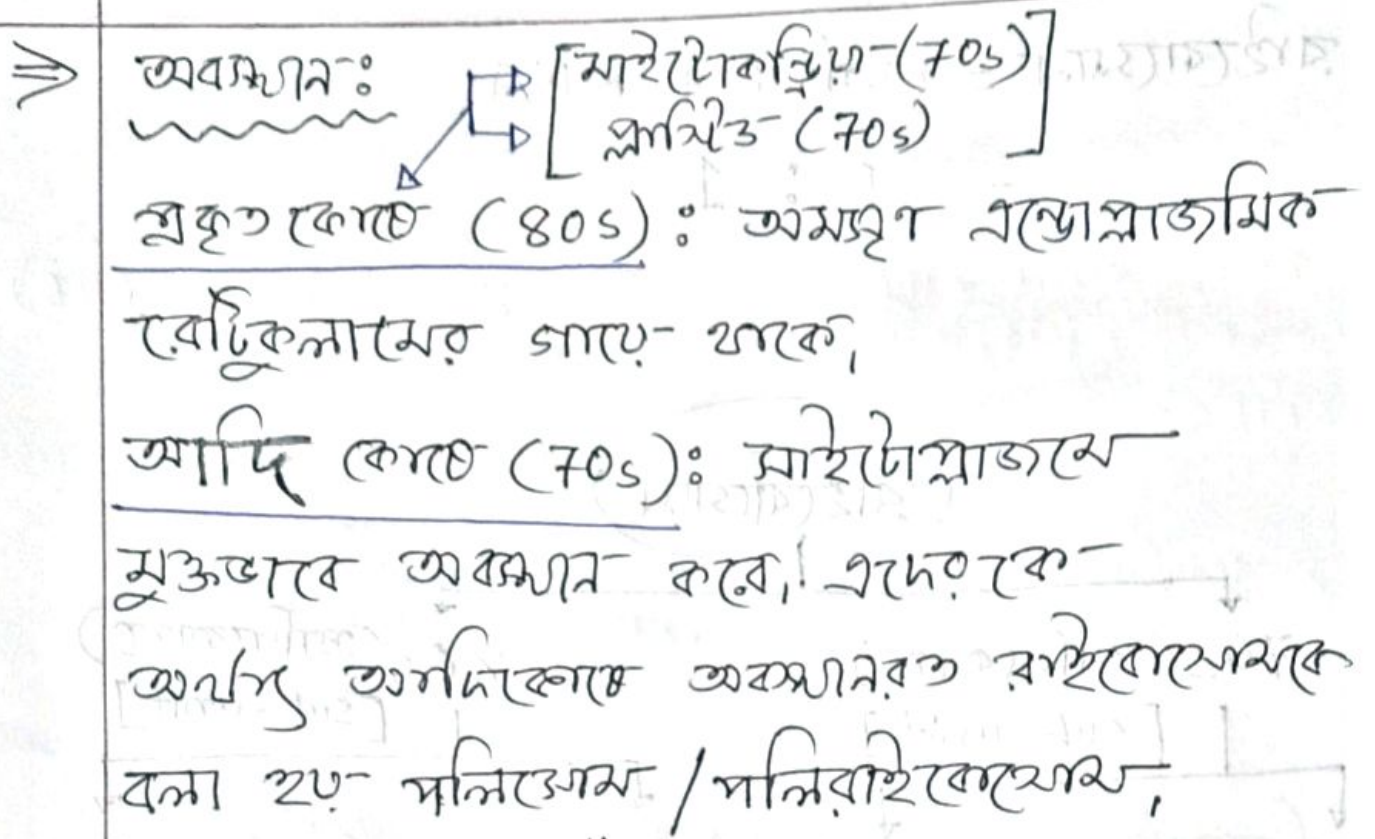 ⇒ অবস্থান: [মাইটোকন্ড্রিয়া (70s)
প্লাস্টিড (70s)]
প্রকৃত কোষে (80s): অমসৃণ এন্ডোপ্লাজমিক
রেটিকুলামের গায়ে থাকে,
আদি কোষে (70s): সাইটোপ্লাজমে
মুক্তভাবে অবস্থান করে, এদেরকে
অর্থাৎ আদিকোষে অবস্থানরত রাইবোসোমকে
বলা হয় পলিসোম / পলিরাইবোসোম,